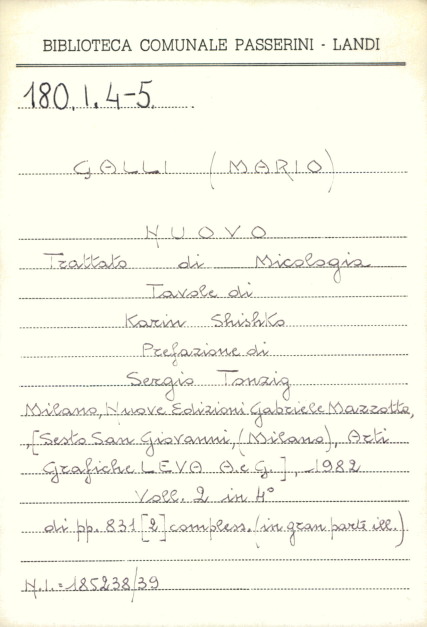 BIBLIOTECA COMUNALE PASSERINI - LANDI
180.I.4-5.
GALLI (MARIO)
NUOVO
Trattato di Micologia
Tavole di
Karin Shishko
Prefazione di
Sergio Tonzig
Milano, Nuove Edizioni Gabriele Mazzotta,
,[Sesto San Giovanni, (Milano), Arti
Grafiche LEVA A. e G.], -1982
Voll. 2 in 4°
di pp. 831 [2] compless. (in gran parte ill.)
N.I.=185238/39